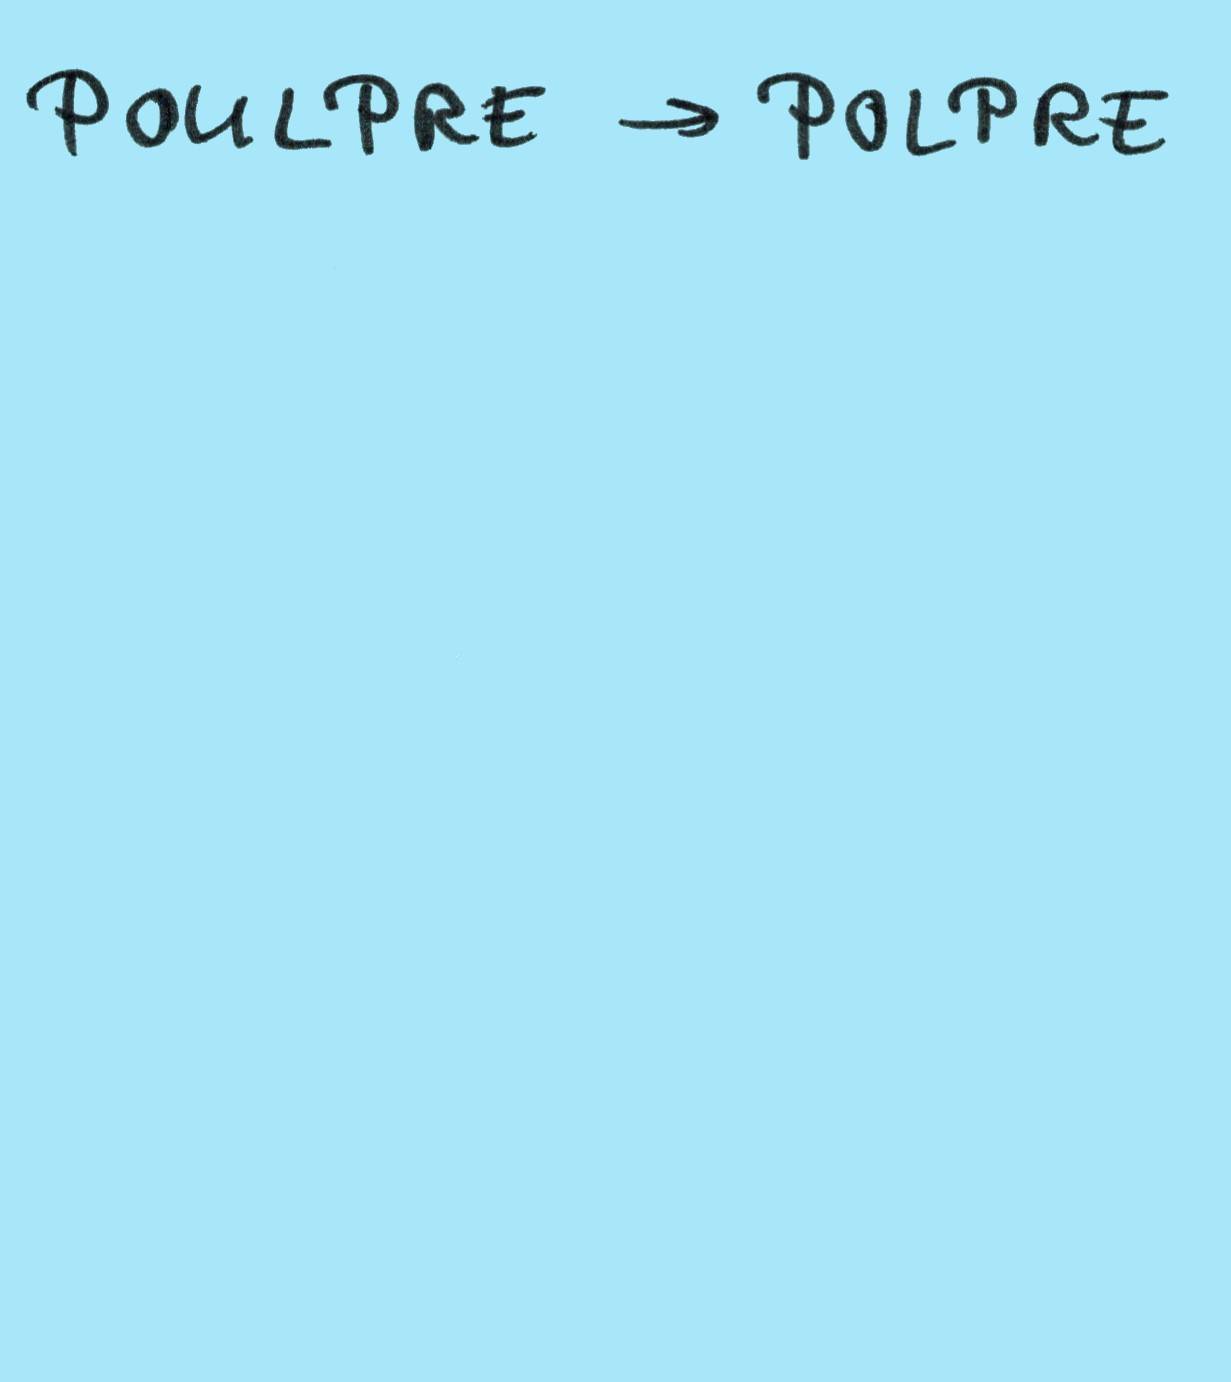 POULPRE → POLPRE